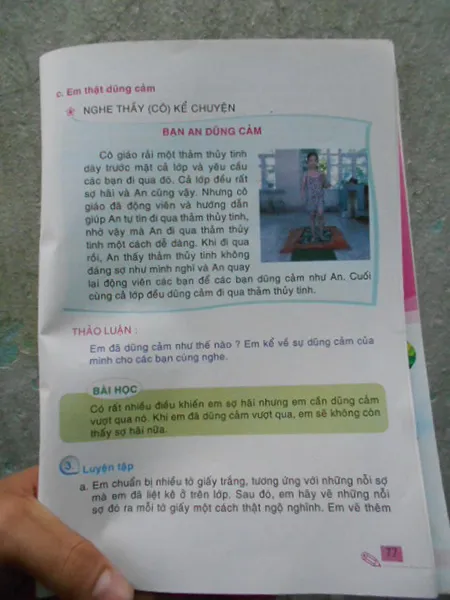 c. Em thật dũng cảm
NGHE THẦY (CÔ) KỂ CHUYỆN
BẠN AN DŨNG CẢM
Cô giáo rải một thảm thủy tinh
dày trước mặt cả lớp và yêu cầu
các bạn đi qua đó. Cả lớp đều rất
sợ hãi và An cũng vậy. Nhưng cô
giáo đã động viên và hướng dẫn
giúp An tự tin đi qua thảm thủy tinh,
nhờ vậy mà An đi qua thảm thủy
tinh một cách dễ dàng. Khi đi qua
rồi, An thấy thảm thủy tinh không
đáng sợ như mình nghĩ và An quay
lại động viên các bạn để các bạn dũng cảm như An. Cuối
cùng cả lớp đều dũng cảm đi qua thảm thủy tinh.
THẢO LUẬN :
Em đã dũng cảm như thế nào ? Em kể về sự dũng cảm của
mình cho các bạn cùng nghe.
BÀI HỌC
Có rất nhiều điều khiến em sợ hãi nhưng em cần dũng cảm
vượt qua nó. Khi em đã dũng cảm vượt qua, em sẽ không còn
thấy sợ hãi nữa.
3. Luyện tập
a. Em chuẩn bị nhiều tờ giấy trắng, tương ứng với những nỗi sợ
mà em đã liệt kê ở trên lớp. Sau đó, em hãy vẽ những nỗi
sợ đó ra mỗi tờ giấy một cách thật ngộ nghĩnh. Em vẽ thêm
77